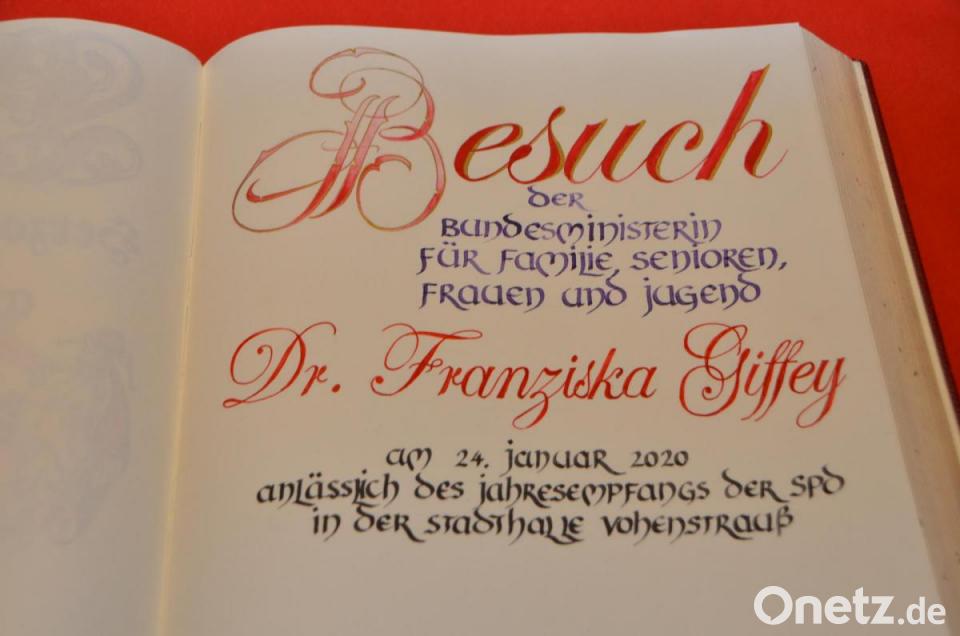 Besuch
der
Bundesministerin
für Familie, Senioren,
Frauen und Jugend
Dr. Franziska Giffey
am 24. Januar 2020
anlässlich des Jahresempfangs der SPD
in der Stadthalle Vohenstrauß
Onetz.de